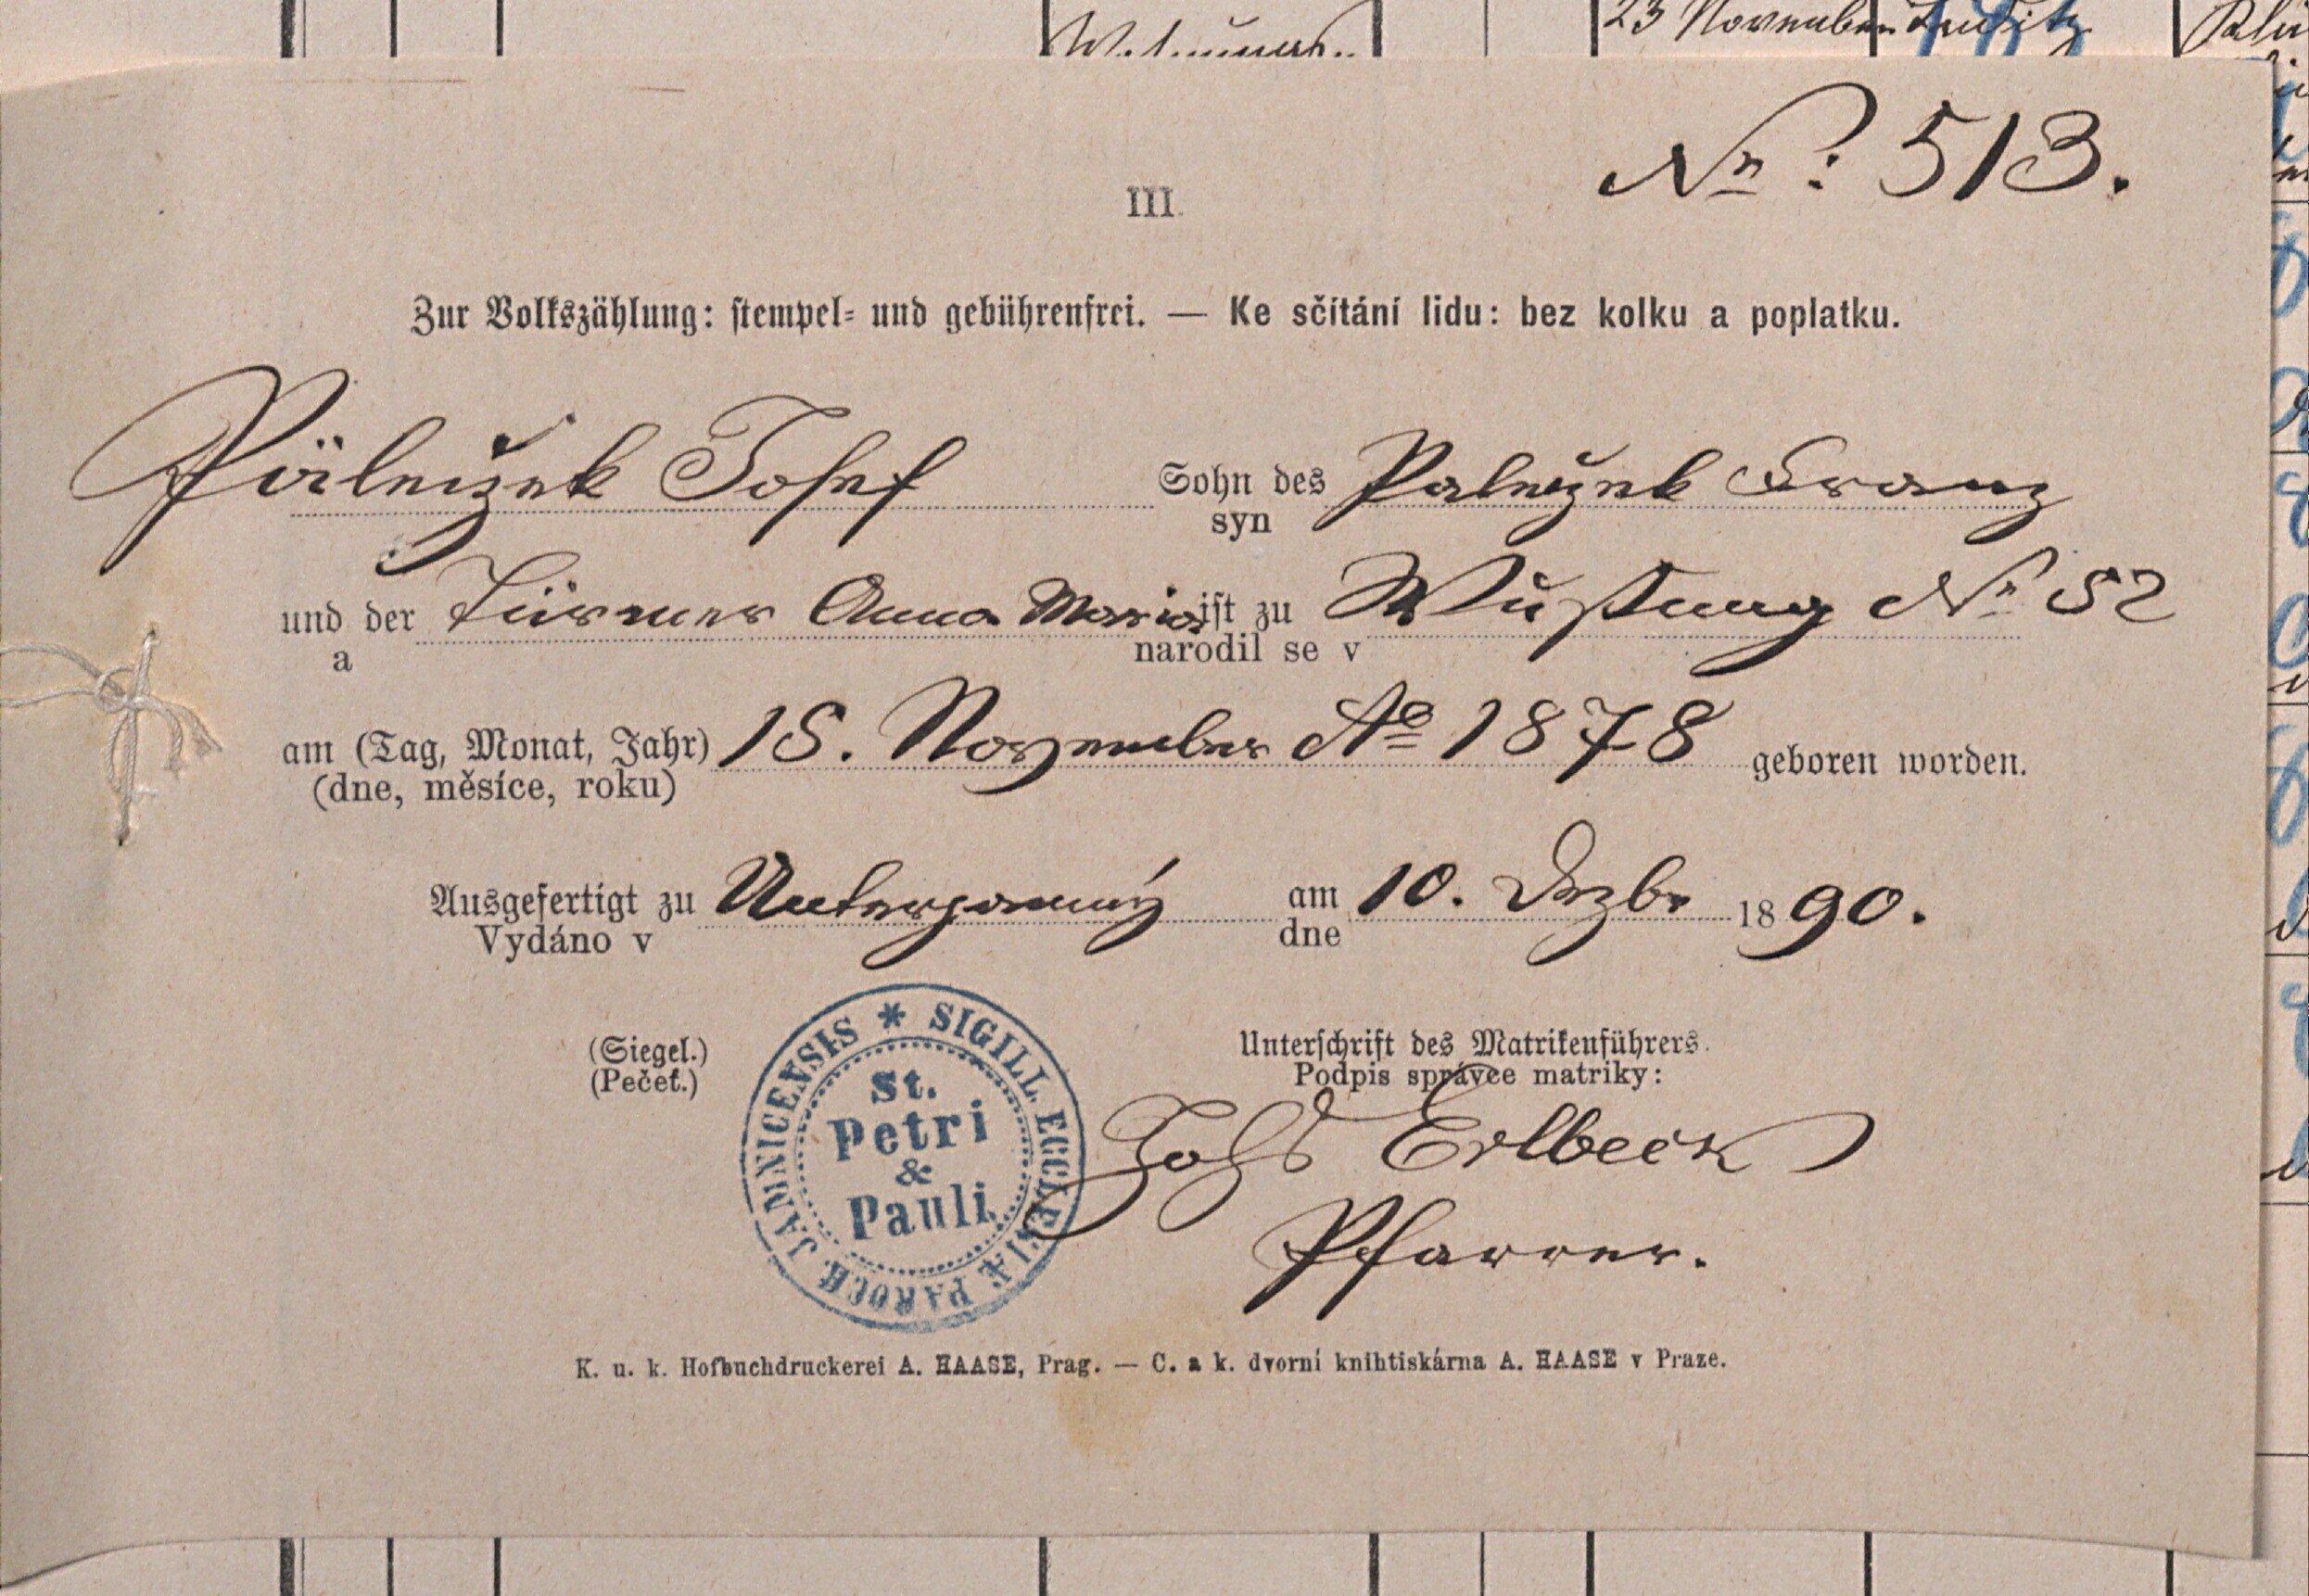 23 November Luditz
Nr: 513.
III.
Zur Volkszählung: stempel- und gebührenfrei. — Ke sčítání lidu: bez kolku a poplatku.
Paležek Josef Sohn des Paležek Franz
syn
und der Türmer Anna Maria ist zu Wüstung Nr 52
a narodil se v
am (Tag, Monat, Jahr) 18. November Ao 1878 geboren worden.
(dne, měsíce, roku)
Ausgefertigt zu Unterjamný am 10. Dezbr 1890.
Vydáno v dne
(Siegel.) Unterschrift des Matrikenführers.
(Pečeť.) Podpis správce matriky:
* SIGILL. ECCLESIÆ PAROCH. JAMNICENSIS
St.
Petri
&
Pauli
Erlbeck
Pfarrer.
K. u. k. Hofbuchdruckerei A. HAASE, Prag. — C. a k. dvorní knihtiskárna A. HAASE v Praze.